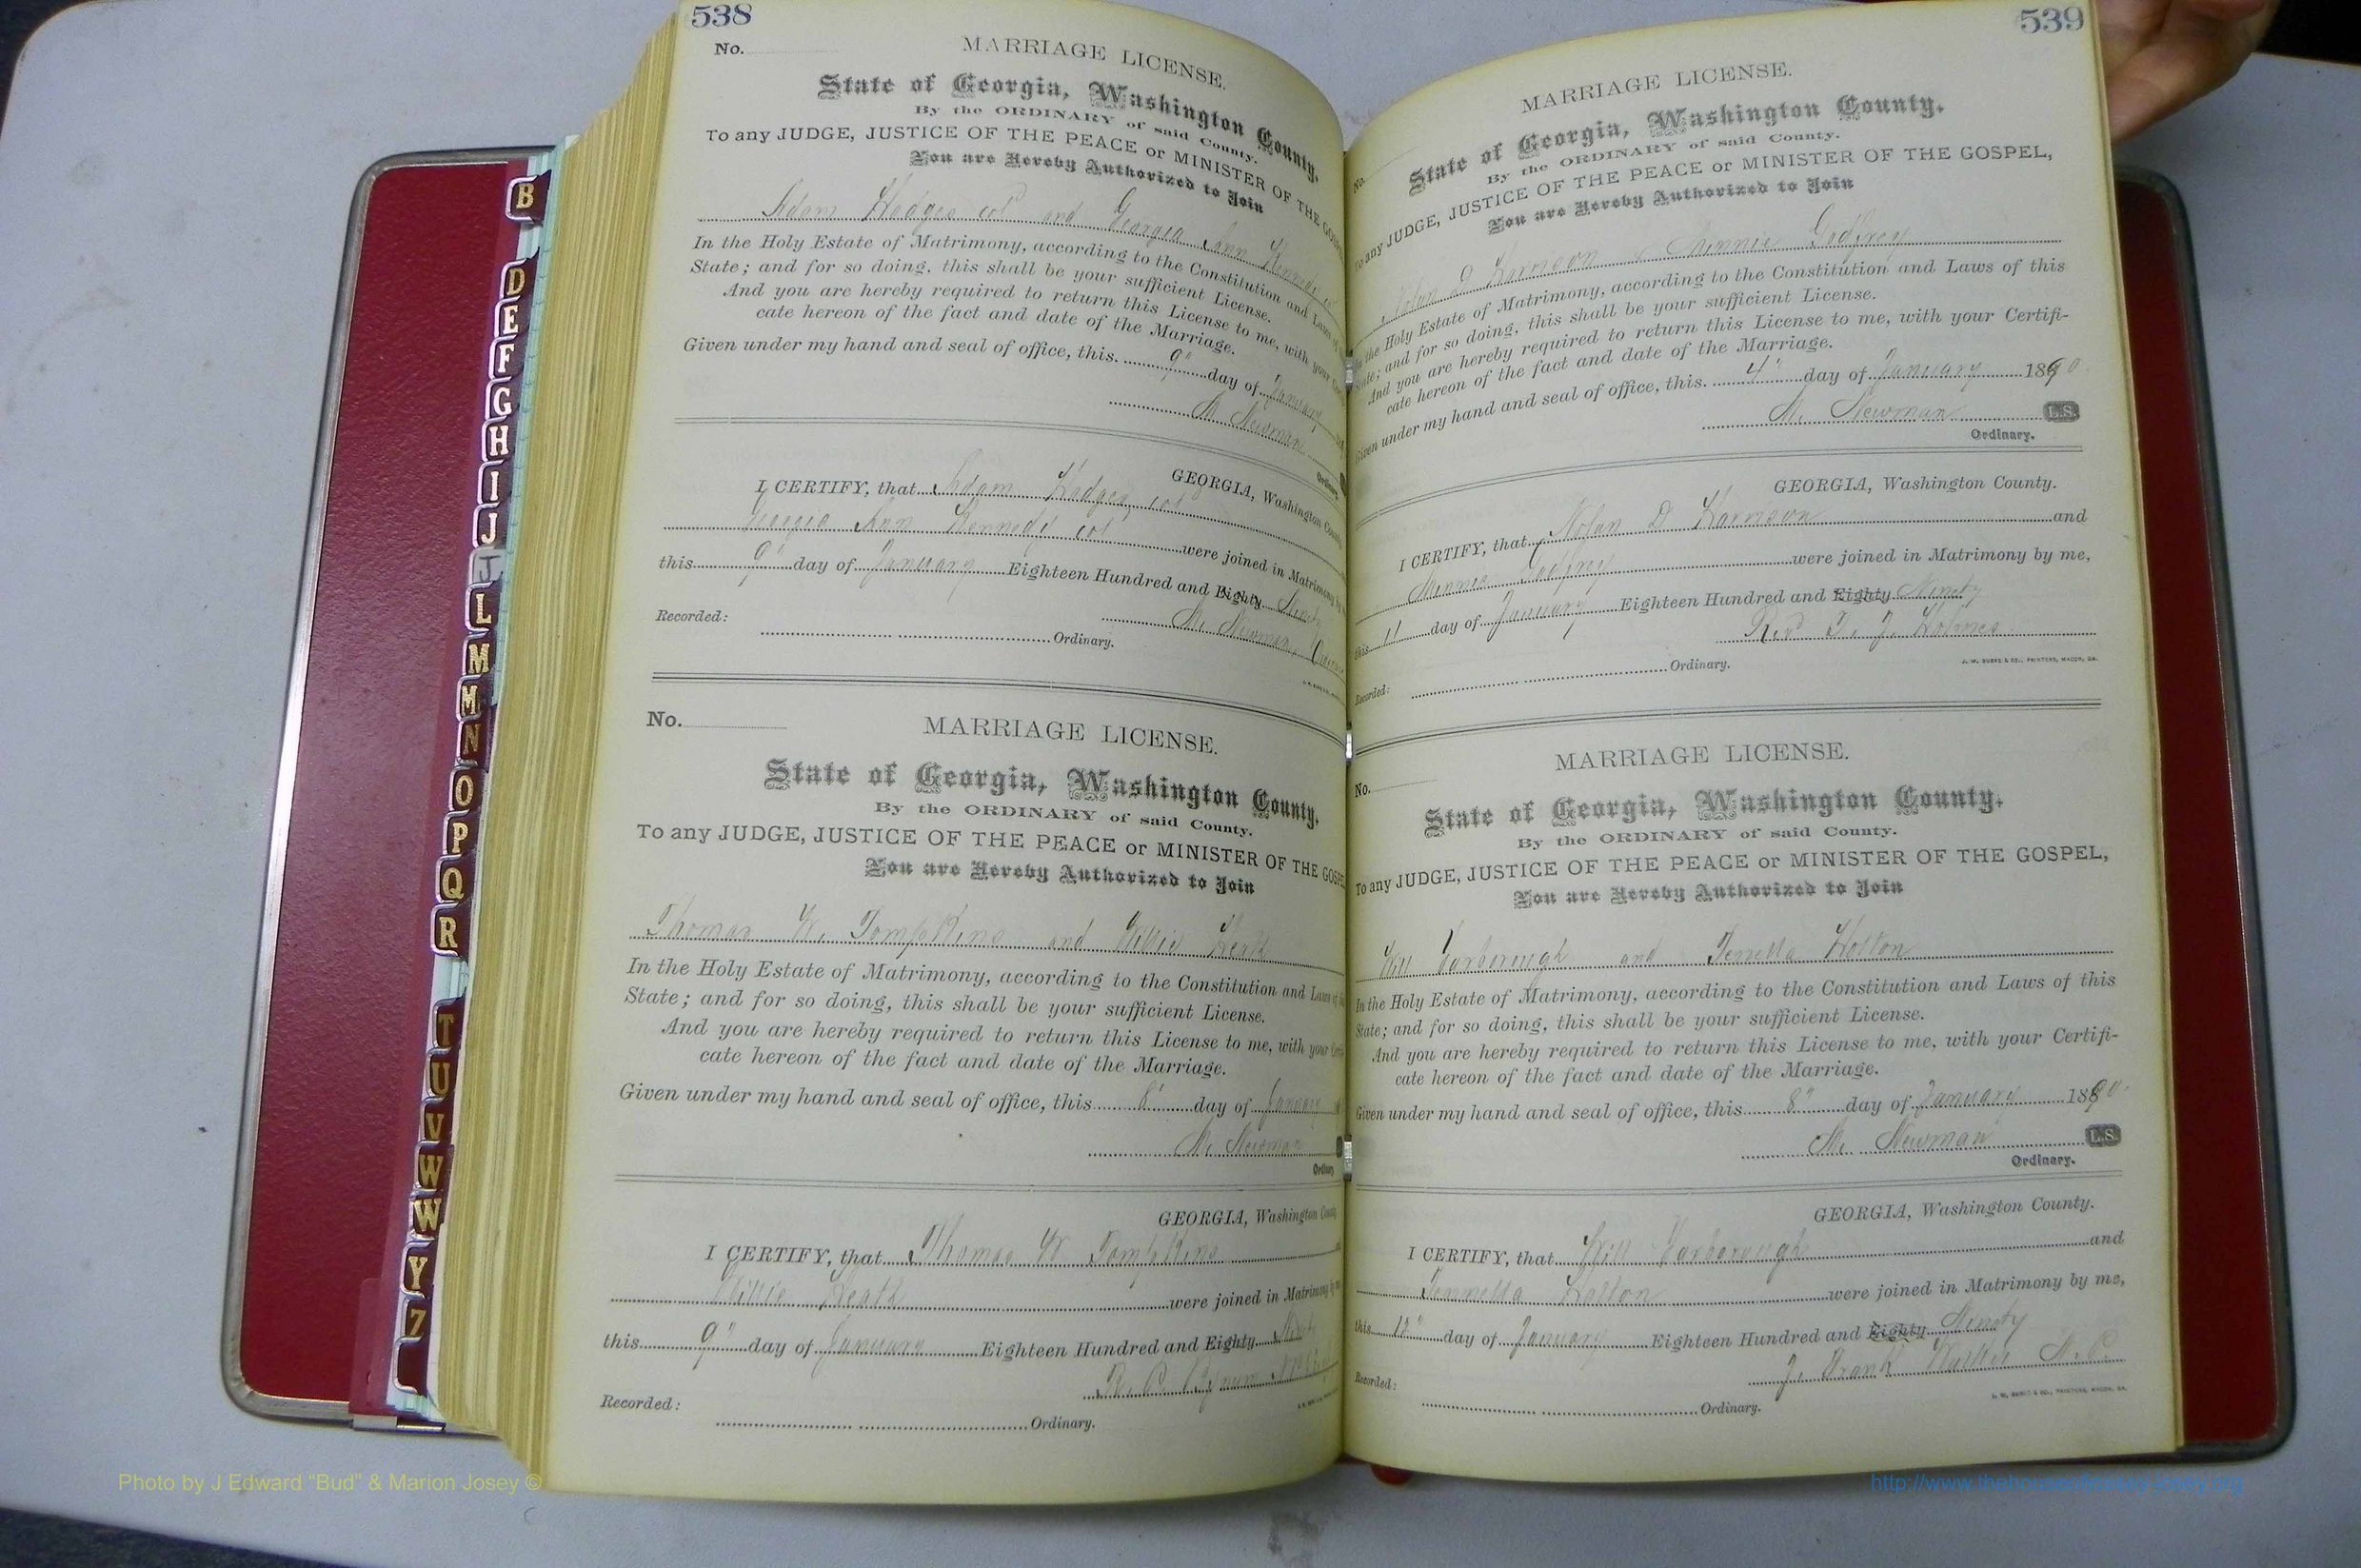 538
No.
MARRIAGE LICENSE.
State of Georgia, Washington County.
By the ORDINARY of said County.
To any JUDGE, JUSTICE OF THE PEACE or MINISTER OF THE
You are Hereby Authorized to Join
Adam Hodges col and Georgia Ann Kennedy
In the Holy Estate of Matrimony, according to the Constitution and Laws of
State; and for so doing, this shall be your sufficient License.
And you are hereby required to return this License to me, with your
cate hereon of the fact and date of the Marriage.
Given under my hand and seal of office, this 9" day of January
M. Newman
Ordinary.
GEORGIA, Washington County
I CERTIFY, that Adam Hodges col
Georgia Ann Kennedy col were joined in Matrimony
this 9" day of January Eighteen Hundred and Eighty Ninety
M. Newman
Recorded: Ordinary.
No.
MARRIAGE LICENSE.
State of Georgia, Washington County.
By the ORDINARY of said County.
To any JUDGE, JUSTICE OF THE PEACE or MINISTER OF THE GOSPEL
You are Hereby Authorized to Join
Thomas W. Tompkins and Willie Heath
In the Holy Estate of Matrimony, according to the Constitution and Laws of
State; and for so doing, this shall be your sufficient License.
And you are hereby required to return this License to me, with your
cate hereon of the fact and date of the Marriage.
Given under my hand and seal of office, this 8" day of January
M. Newman
Ordinary
GEORGIA, Washington County
I CERTIFY, that Thomas W. Tompkins
Willie Heath were joined in Matrimony by
this 9" day of January Eighteen Hundred and Eighty
R. P. Bynum
Recorded: Ordinary.
539
No.
MARRIAGE LICENSE.
State of Georgia, Washington County.
By the ORDINARY of said County.
To any JUDGE, JUSTICE OF THE PEACE or MINISTER OF THE GOSPEL,
You are Hereby Authorized to Join
Nolan D Harrison & Minnie Godfrey
In the Holy Estate of Matrimony, according to the Constitution and Laws of this
State; and for so doing, this shall be your sufficient License.
And you are hereby required to return this License to me, with your Certifi-
cate hereon of the fact and date of the Marriage.
Given under my hand and seal of office, this 4" day of January 1890
M. Newman L.S.
Ordinary.
GEORGIA, Washington County.
I CERTIFY, that Nolan D. Harrison and
Minnie Godfrey were joined in Matrimony by me,
this day of January Eighteen Hundred and Eighty Ninety
Rev T. J. Holmes
Recorded: Ordinary.
J. W. BURKE & CO., PRINTERS, MACON, GA.
No.
MARRIAGE LICENSE.
State of Georgia, Washington County.
By the ORDINARY of said County.
To any JUDGE, JUSTICE OF THE PEACE or MINISTER OF THE GOSPEL,
You are Hereby Authorized to Join
Will Yarborough and Fennella Holton
In the Holy Estate of Matrimony, according to the Constitution and Laws of this
State; and for so doing, this shall be your sufficient License.
And you are hereby required to return this License to me, with your Certifi-
cate hereon of the fact and date of the Marriage.
Given under my hand and seal of office, this 8" day of January 1890.
M. Newman L.S.
Ordinary.
GEORGIA, Washington County.
I CERTIFY, that Will Yarborough and
Fennella Holton were joined in Matrimony by me,
this 12" day of January Eighteen Hundred and Eighty Ninety
J. Frank Walker
Recorded: Ordinary.
J. W. BURKE & CO., PRINTERS, MACON, GA.
B
D
E
F
G
H
I
J
J
L
M
M
N
O
P
Q
R
T
U
V
W
W
Y
Z
Photo by J Edward "Bud" & Marion Josey ©